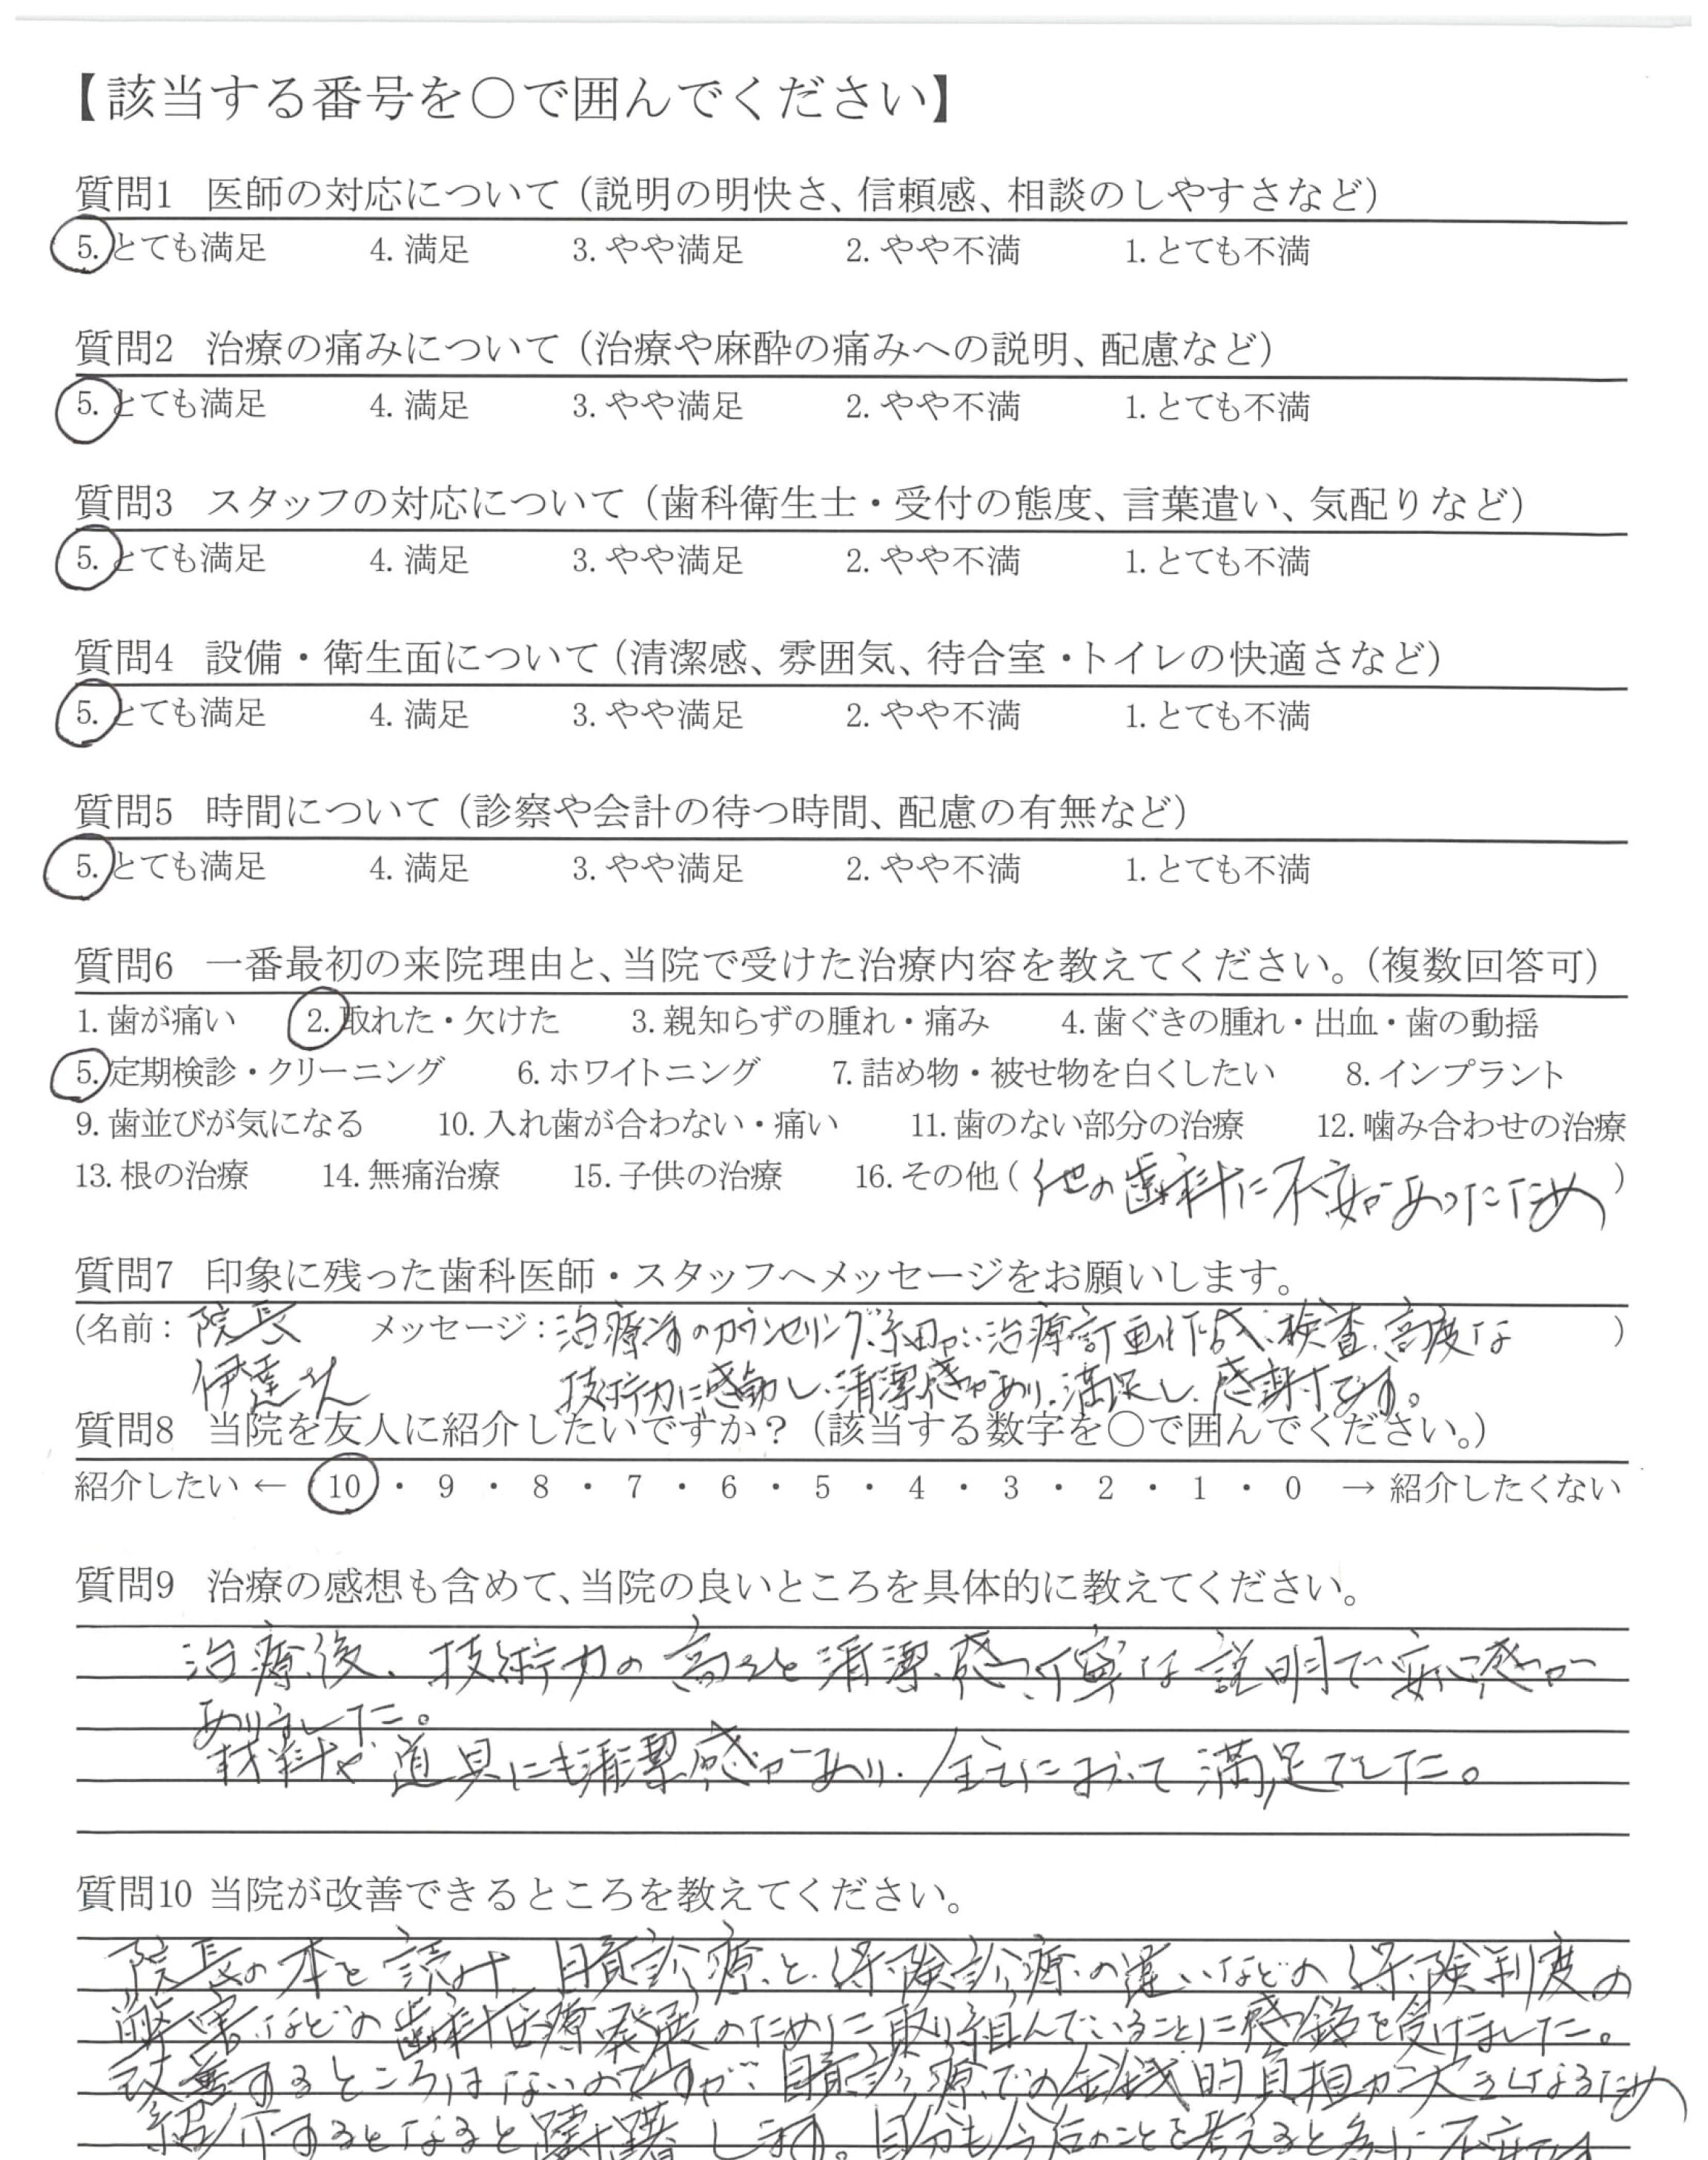 【該当する番号を○で囲んでください】
質問1 医師の対応について（説明の明快さ、信頼感、相談のしやすさなど）
5.とても満足 4.満足 3.やや満足 2.やや不満 1.とても不満
質問2 治療の痛みについて（治療や麻酔の痛みへの説明、配慮など）
5.とても満足 4.満足 3.やや満足 2.やや不満 1.とても不満
質問3 スタッフの対応について（歯科衛生士・受付の態度、言葉遣い、気配りなど）
5.とても満足 4.満足 3.やや満足 2.やや不満 1.とても不満
質問4 設備・衛生面について（清潔感、雰囲気、待合室・トイレの快適さなど）
5.とても満足 4.満足 3.やや満足 2.やや不満 1.とても不満
質問5 時間について（診察や会計の待つ時間、配慮の有無など）
5.とても満足 4.満足 3.やや満足 2.やや不満 1.とても不満
質問6 一番最初の来院理由と、当院で受けた治療内容を教えてください。（複数回答可）
1.歯が痛い 2.取れた・欠けた 3.親知らずの腫れ・痛み 4.歯ぐきの腫れ・出血・歯の動揺
5.定期検診・クリーニング 6.ホワイトニング 7.詰め物・被せ物を白くしたい 8.インプラント
9.歯並びが気になる 10.入れ歯が合わない・痛い 11.歯のない部分の治療 12.噛み合わせの治療
13.根の治療 14.無痛治療 15.子供の治療 16.その他（他の歯科に不安があったため）
質問7 印象に残った歯科医師・スタッフへメッセージをお願いします。
（名前：院長 メッセージ：治療前のカウンセリング、細かい治療計画作成、検査、高度な）
伊達さん 技術力に感動し、清潔感があり、満足し、感謝です。
質問8 当院を友人に紹介したいですか？（該当する数字を○で囲んでください。）
紹介したい ← 10・9・8・7・6・5・4・3・2・1・0 → 紹介したくない
質問9 治療の感想も含めて、当院の良いところを具体的に教えてください。
治療後、技術力の高さと清潔感、丁寧な説明で安心感が
ありました。
材料や道具にも清潔感があり、全てにおいて満足でした。
質問10 当院が改善できるところを教えてください。
院長の本を読み、自費診療と保険診療の違いなどの保険制度の
弊害などの歯科医療発展のために取り組んでいることに感銘を受けました。
改善するところはないのですが、自費診療での金銭的負担が大きくなるため
紹介するとなると躊躇します。自分も今後のことを考えると多少不安です